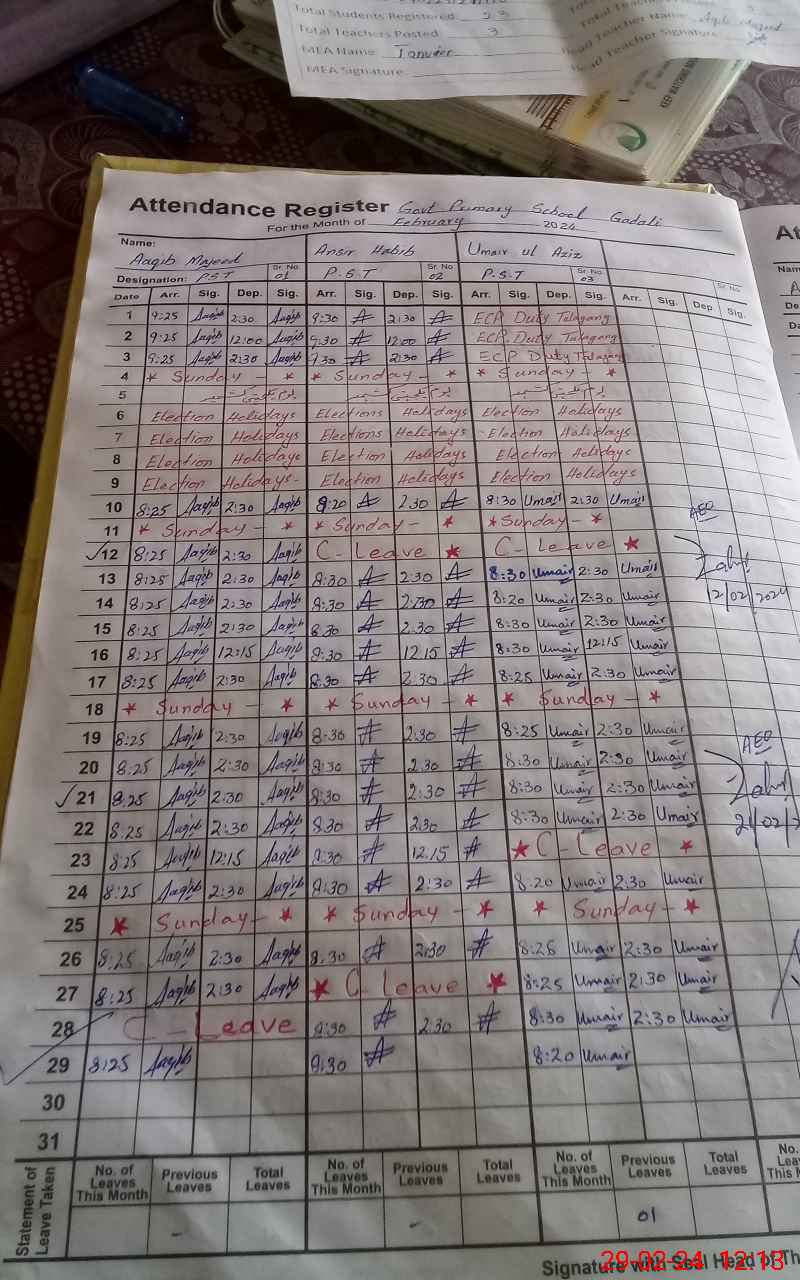 Total Students Registered 23
Total Teachers Posted 3
MEA Name Tanveer
MEA Signature
Head Teacher Name
Head Teacher Signature
KEEP WATCHING
Attendance Register Govt Primary School Gadali
For the Month of February 2024
Name: Aaqib Majeed Ansir Habib Umair ul Aziz
Designation: P.S.T Sr. No. 01 P.S.T Sr. No. 02 P.S.T Sr. No. 03 Sr. No.
Date Arr. Sig. Dep. Sig. Arr. Sig. Dep. Sig. Arr. Sig. Dep. Sig. Arr. Sig. Dep. Sig.
1 9:25 Aaqib 2:30 Aaqib 9:30 A 2:30 A ECP Duty Talagang
2 9:25 Aaqib 12:00 Aaqib 9:30 A 12:00 A ECP Duty Talagang
3 9:25 Aaqib 2:30 Aaqib 9:30 A 2:30 A ECP Duty Talagang
4 * Sunday - * * Sunday - * * Sunday - *
5 یوم یکجہتی کشمیر یوم یکجہتی کشمیر یوم یکجہتی کشمیر
6 Election Holidays Elections Holidays Election Holidays
7 Election Holidays Elections Holidays Election Holidays
8 Election Holidays Election Holidays Election Holidays
9 Election Holidays- Election Holidays Election Holidays
10 8:25 Aaqib 2:30 Aaqib 8:20 A 2:30 A 8:30 Umair 2:30 Umair
11 * Sunday - * * Sunday - * * Sunday - *
AEO
✓12 8:25 Aaqib 2:30 Aaqib C-Leave * C-Leave *
13 8:25 Aaqib 2:30 Aaqib 8:30 A 2:30 A 8:30 Umair 2:30 Umair
14 8:25 Aaqib 2:30 Aaqib 8:30 A 2:30 A 8:20 Umair 2:30 Umair
12/02/2024
15 8:25 Aaqib 2:30 Aaqib 8:30 A 2:30 A 8:30 Umair 2:30 Umair
16 8:25 Aaqib 12:15 Aaqib 8:30 A 12:15 A 8:30 Umair 12:15 Umair
17 8:25 Aaqib 2:30 Aaqib 8:30 A 2:30 A 8:25 Umair 2:30 Umair
18 * Sunday - * * Sunday - * * Sunday - *
19 8:25 Aaqib 2:30 Aaqib 8:30 A 2:30 A 8:25 Umair 2:30 Umair
AEO
20 8:25 Aaqib 2:30 Aaqib 8:30 A 2:30 A 8:30 Umair 2:30 Umair
✓21 8:25 Aaqib 2:30 Aaqib 8:30 A 2:30 A 8:30 Umair 2:30 Umair
22 8:25 Aaqib 2:30 Aaqib 8:30 A 2:30 A 8:30 Umair 2:30 Umair
21/02/2
23 8:25 Aaqib 12:15 Aaqib 8:30 A 12:15 A * C-Leave *
24 8:25 Aaqib 2:30 Aaqib 8:30 A 2:30 A 8:20 Umair 2:30 Umair
25 * Sunday - * * Sunday - * * Sunday - *
26 8:25 Aaqib 2:30 Aaqib 8:30 A 2:30 A 8:25 Umair 2:30 Umair
27 8:25 Aaqib 2:30 Aaqib * C-Leave * 8:25 Umair 2:30 Umair
28 C-Leave 8:30 A 2:30 A 8:30 Umair 2:30 Umair
29 8:25 Aaqib 8:30 A 8:20 Umair
30
31
Statement of Leave Taken No. of Leaves This Month Previous Leaves Total Leaves No. of Leaves This Month Previous Leaves Total Leaves No. of Leaves This Month Previous Leaves Total Leaves No.
- - 01
Signature with Seal Head of Th
29-02-24 12:13